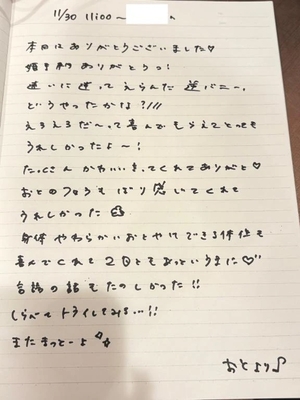 11/30 11:00〜
本日はありがとうございました♡
姫予約ありがとうっ!
迷いに迷ってえらんだ逆バニー、
どうやったかな?///
えろえろだ〜って喜んでもらえてとっても
うれしかったよ〜!
たっくさんかわいいきってくれてありがと♡
おとのフェラもばり感じてくれて
うれしかった
身体やわらかいおとやけできる体位も
喜んでくれて2回ともあっというまに♡
言語の話もたのしかった!!
しらべてトライしてみる…!!
またまっとーよ
おとより♪